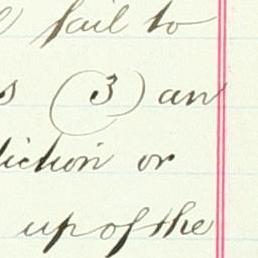 fail to
(3) an
diction or
up of the